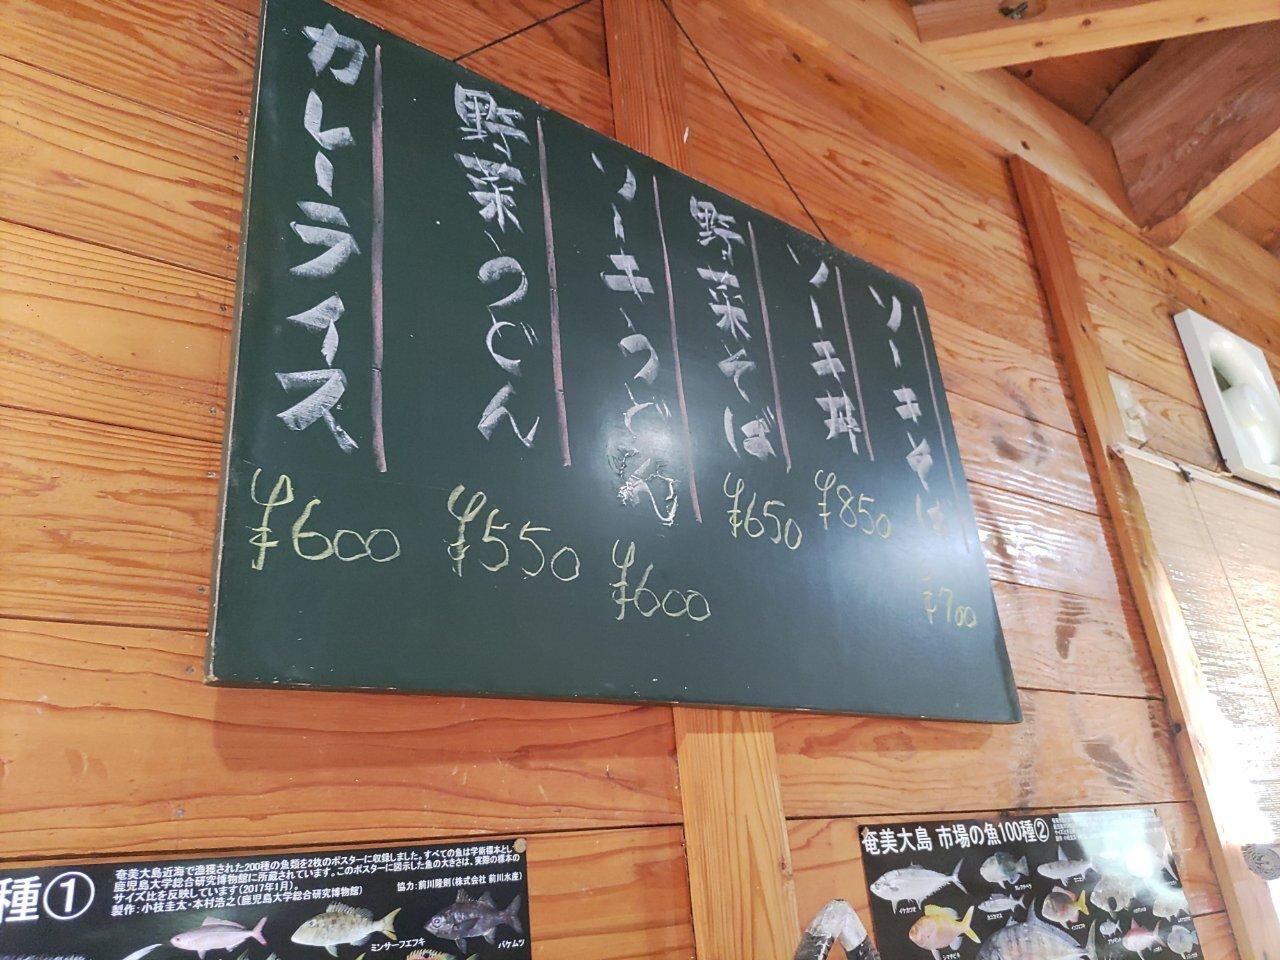 ソーキそば
¥700
ソーキ丼
¥850
野菜そば
¥650
ソーキうどん
¥600
野菜うどん
¥550
カレーライス
¥600
種①
奄美大島近海で漁獲された200種の魚類を2枚のポスターに収録しました。すべての魚は学術標本とし
鹿児島大学総合研究博物館に所蔵されています。このポスターに図示した魚の大きさは、実際の標本の
サイズ比を反映しています(2017年1月)。
製作:小枝圭太・本村浩之(鹿児島大学総合研究博物館)
協力:前川隆則(株式会社 前川水産)
ミンサーフエフキ
バケムツ
奄美大島 市場の魚100種②